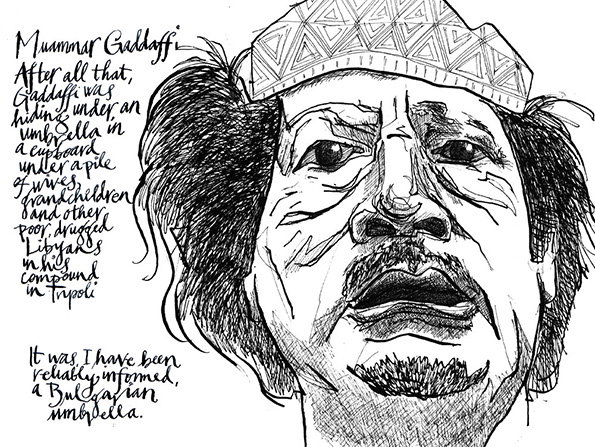 Muammar Gaddaffi
After all that,
Gaddaffi was
hiding under an
umbrella in
a cupboard
under a pile
of wives,
grandchildren
and other
poor, drugged
Libyans
in his
compound
in Tripoli
It was, I have been
reliably informed,
a Bulgarian
umbrella.